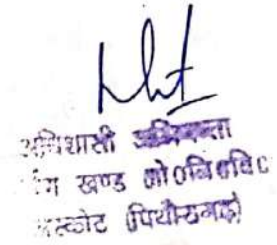 अधिशासी अभियन्ता
खण्ड लो०नि०वि०
अस्कोट (पिथौरागढ़)